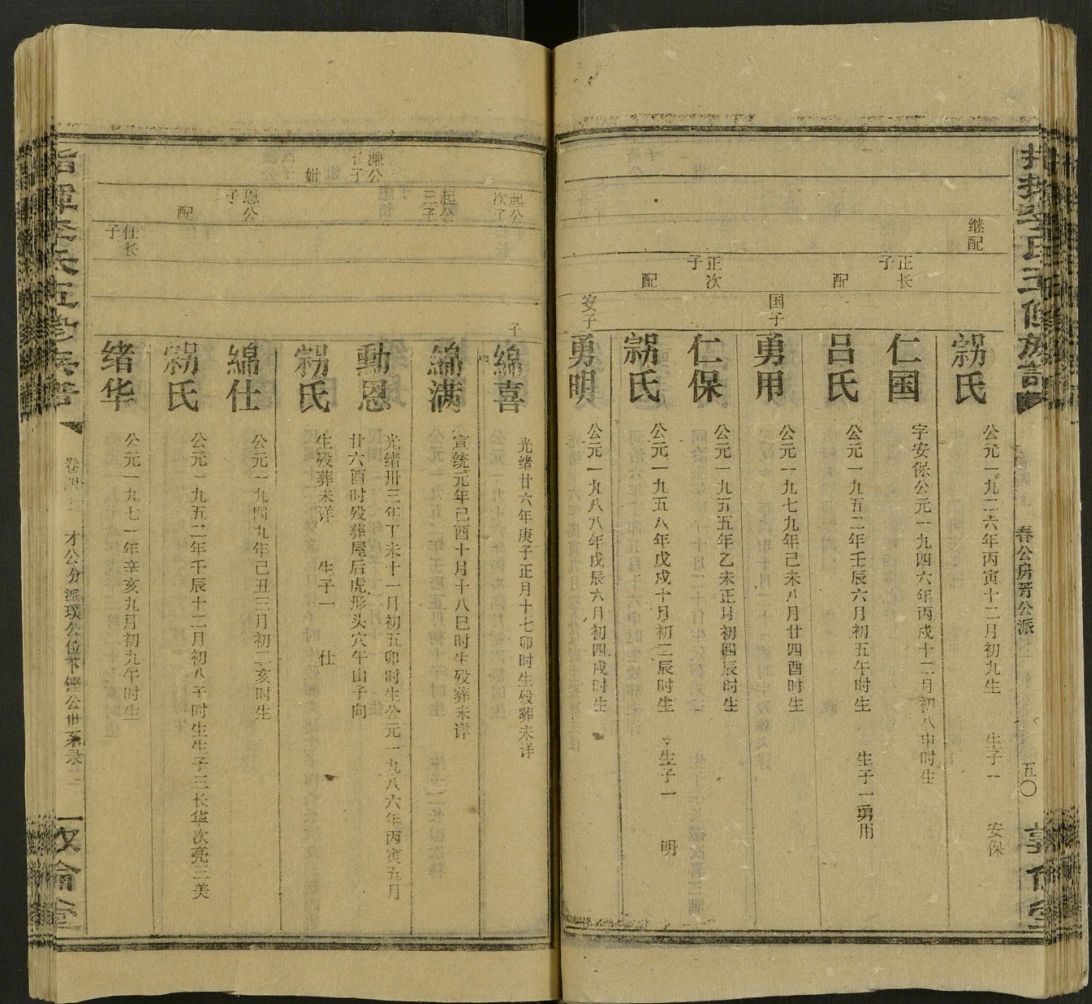 春公房芳公派
五〇
继配
鄢氏
公元一九二六年丙寅十二月初九生 生子一 安保
正长子
仁国
字安保公元一九四六年丙戍十二月初八申时生
配
吕氏
公元一九五二年壬辰六月初五午时生 生子一勇用
国子
勇用
公元一九七九年己未八月廿四酉时生
正次子
仁保
公元一九五五年乙未正月初四辰时生
配
氏
公元一九五八年戊戍十月初二辰时生 生子一 明
安子
勇明
公元一九八八年戊辰六月初四戍时生
起公次子
綿喜
光绪廿六年庚子正月十七卯时生殁葬未详
起公三子
綿满
宣统元年己酉十月十八巳时生殁葬未详
濂公长子
動恩
光绪卅三年丁未十一月初五卯时生公元一九八六年丙寅五月
廿六酉时殁葬屋后虎形头穴午山子向
妣
氏
生殁葬未详 生子一 仕
恩公子
綿仕
公元一九四九年己丑三月初二亥时生
配
氏
公元一九五二年壬辰十二月初八子时生生子三长华次亮三美
仕长子
绪华
公元一九七一年辛亥九月初九午时生
才公分派璞公位下铿公世系录